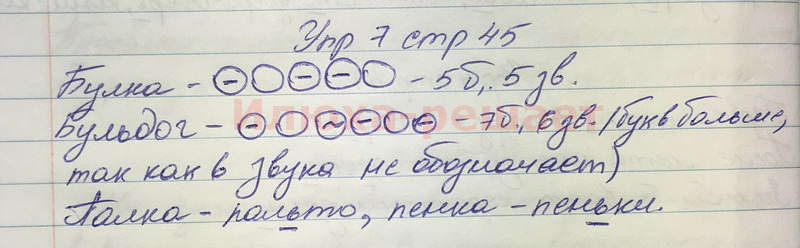 Упр 7 стр 45
Булка - - 5б, 5 зв.
Илюха решает
Бульдог - - 7б, 6 зв. (букв больше,
так как ь звука не обозначает)
Палка - пальто, пенка - пеньки.